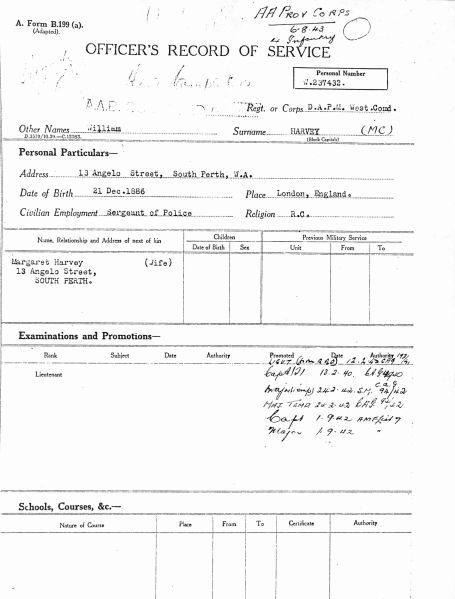 A. Form B.199 (a).
(Adapted).
AA PROV CORPS
6.8.43
as Infantry
OFFICER'S RECORD OF SERVICE
Personal Number
W.237432.
Regt. or Corps D.A.P.M. West.Comd.
Other Names William Surname HARVEY (MC)
(Block Capitals)
Personal Particulars—
Address 13 Angelo Street, South Perth, W.A.
Date of Birth 21 Dec.1886 Place London, England.
Civilian Employment Sergeant of Police Religion R.C.
Name, Relationship and Address of next of kin Children Previous Military Service
Date of Birth Sex Unit From To
Margaret Harvey (Jife)
13 Angelo Street,
SOUTH PERTH.
Examinations and Promotions—
Rank Subject Date Authority Promoted Date Authority
Lieutenant
Capt 13.2.40.
24.2.42
MAJ TEMP 24.2.42
Capt 1.9.42
Major 1.9.42 "
Schools, Courses, &c.—
Nature of Course Place From To Certificate Authority